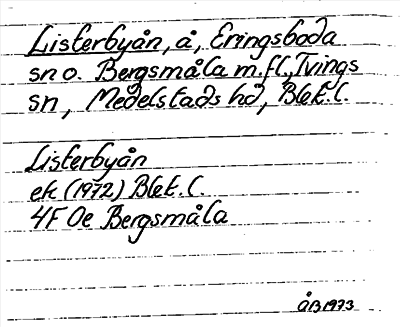 Listerbyån, å, Eringsboda
sn o. Bergsmåla m.fl., Tvings
sn, Medelstads hd, Blek.l.
Listerbyån
ek (1972) Blek.l.
4F 0e Bergsmåla
ÅB 1973